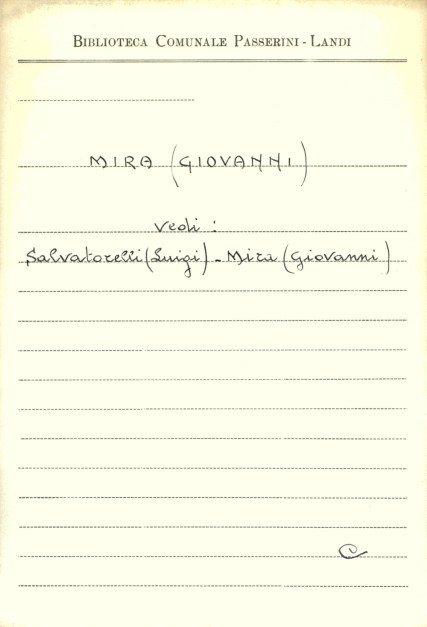 BIBLIOTECA COMUNALE PASSERINI - LANDI
MIRA (GIOVANNI)
Vedi :
Salvatorelli (Luigi) - Mira (Giovanni)
C